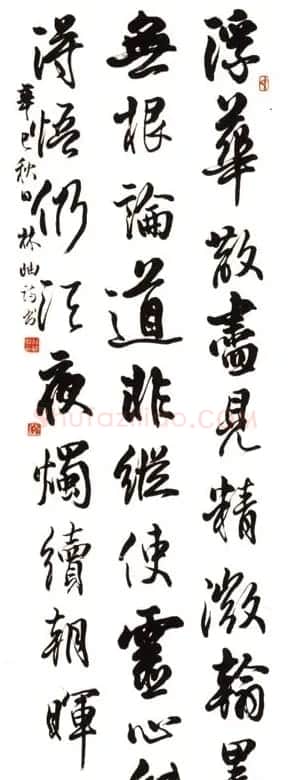 浮華散盡見精微翰墨
無根論道非縱使靈心
得悟仍須夜燭續朝暉
辛巳秋日林岫詩書